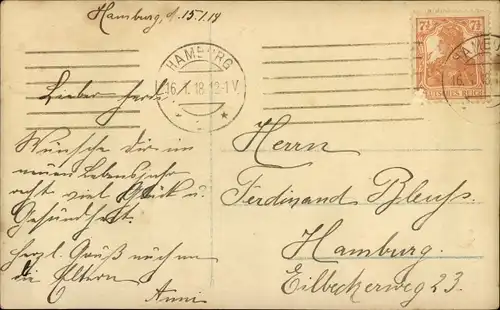 Hamburg, d. 15/1.18
HAMBURG
16.1.18.12-1 V
7½ 7½
DEUTSCHES REICH
HAMBURG
16.1.18
Lieber Ferdi.
Wünsche Dir im
neuen Lebensjahr
recht viel Glück u.
Gesundheit.
herzl. Gruß auch an
die Eltern
Anni
Herrn
Ferdinand
Hamburg.
Eilbeckerweg 23.